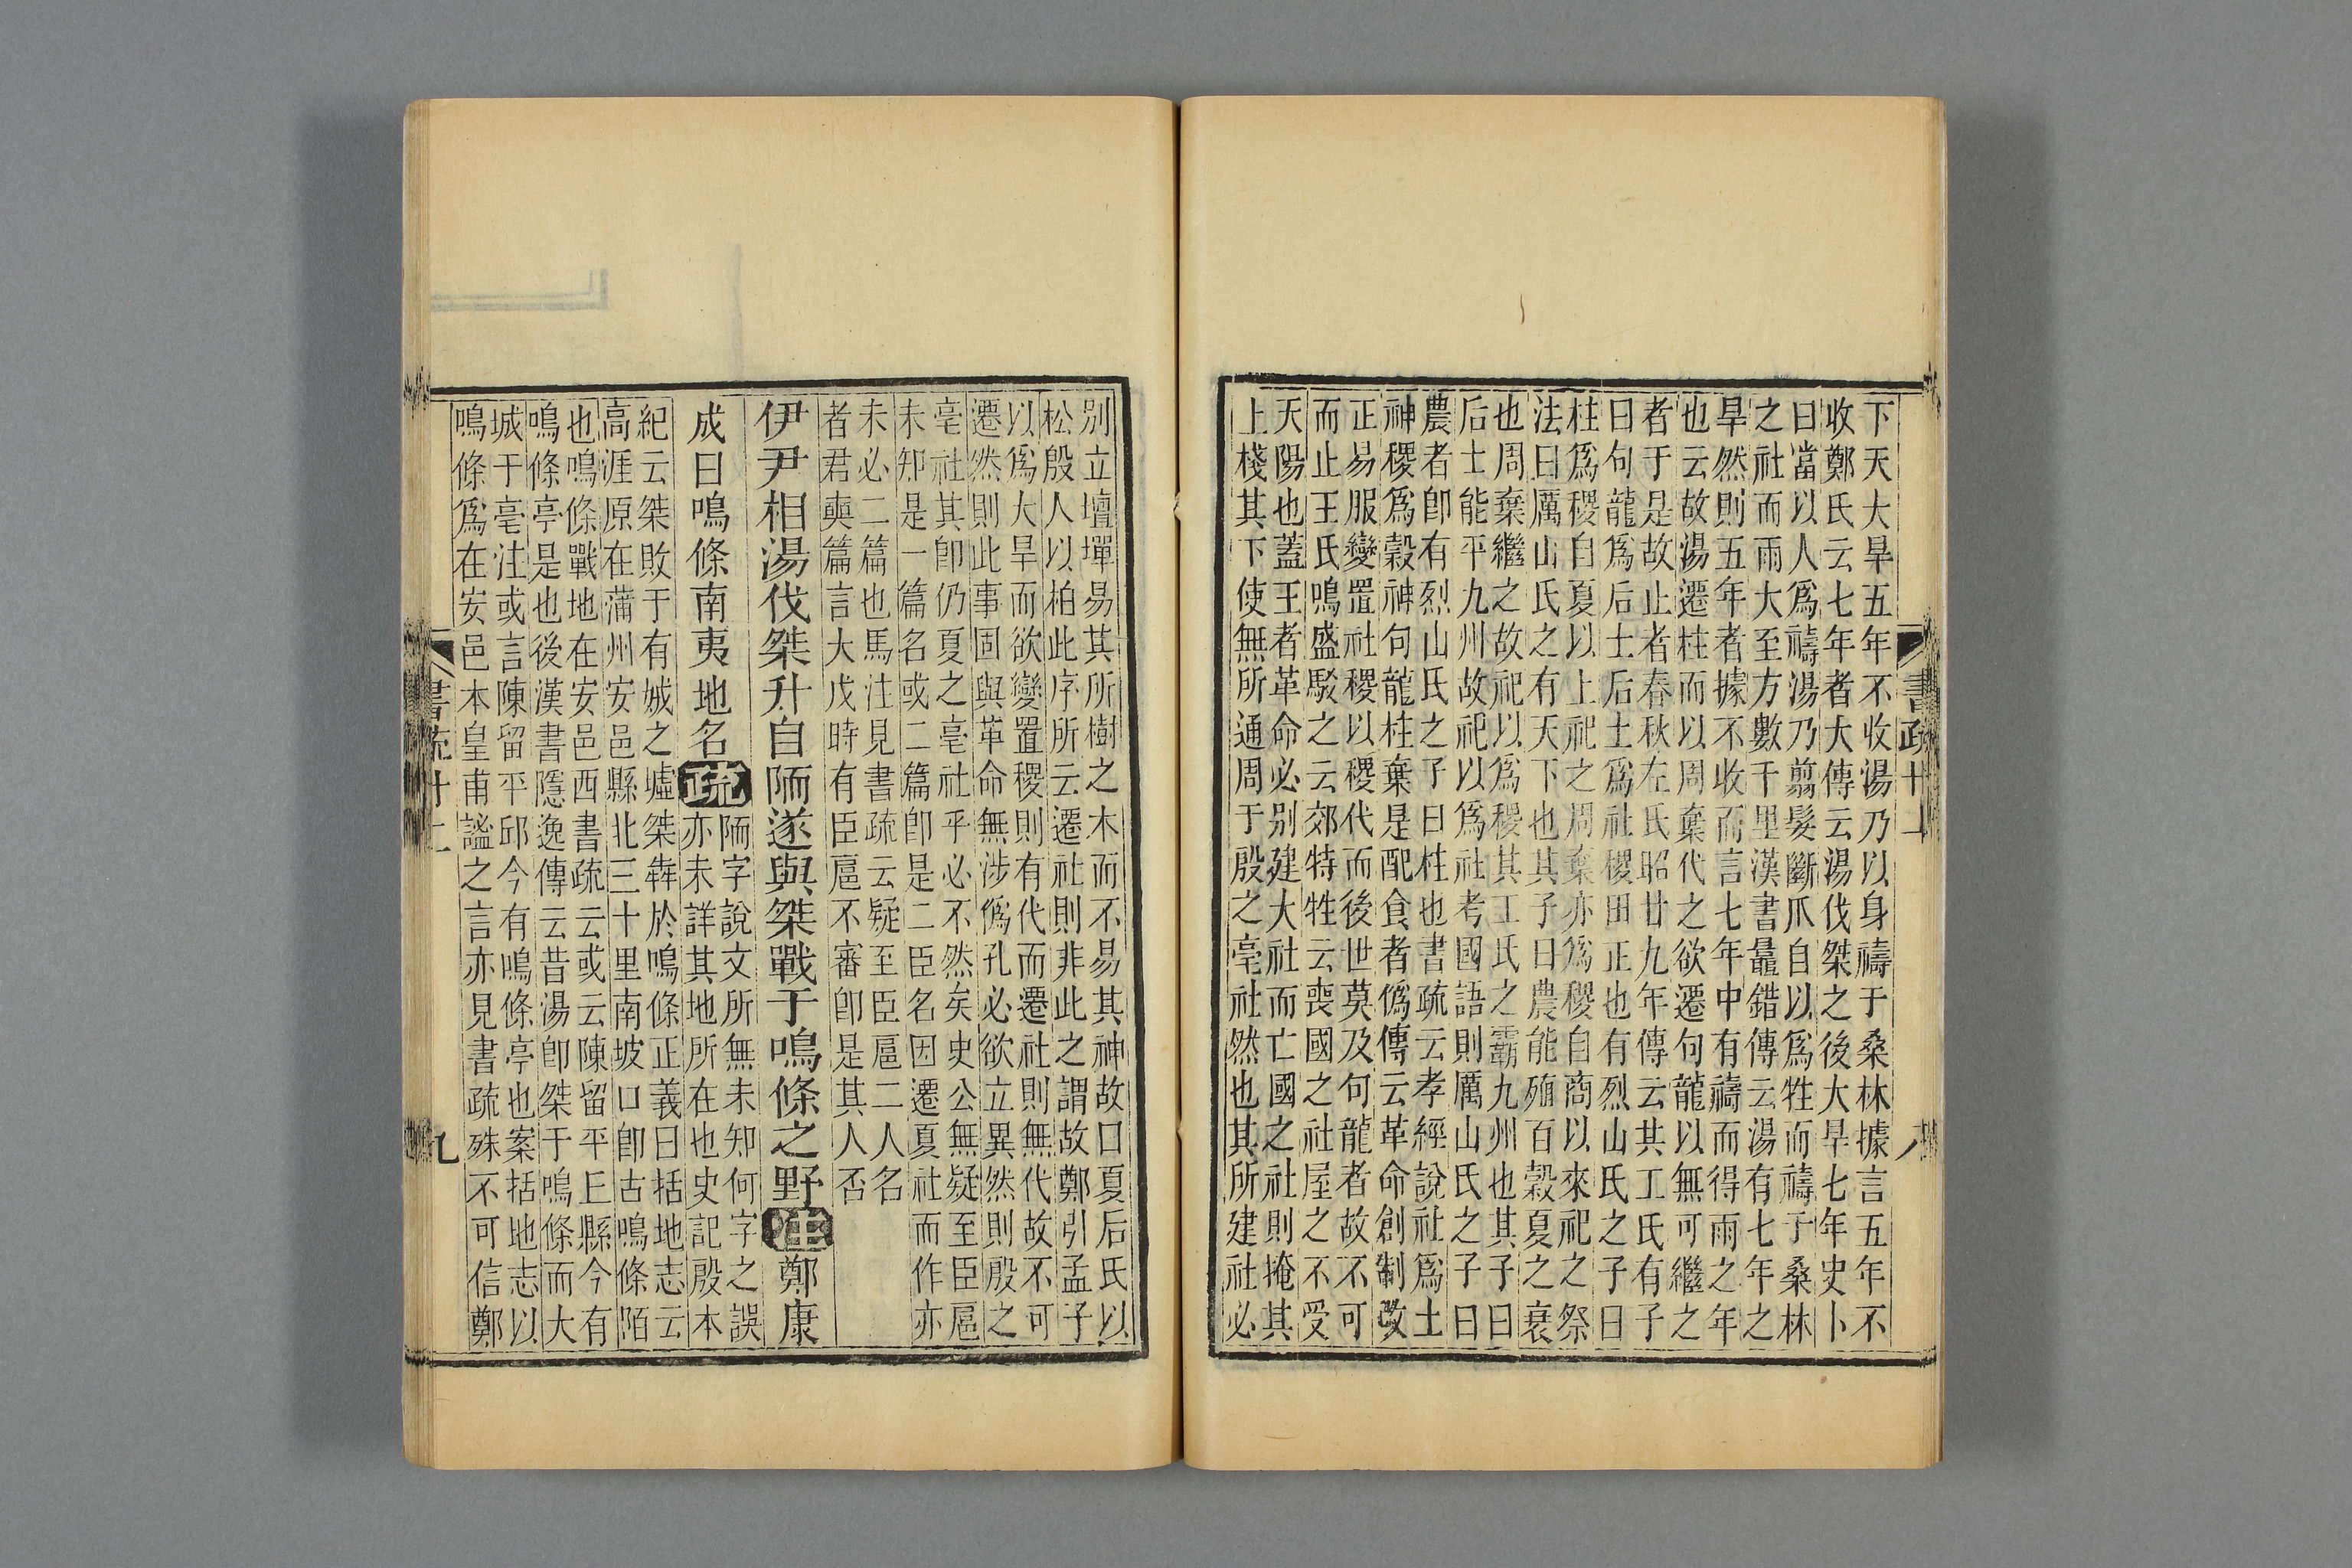 下天大旱五年不收湯乃以身禱于桑林據言五年不
收鄭氏云七年者大傳云湯伐桀之後大旱七年史卜
曰當以人爲禱湯乃翦髮斷爪自以爲牲而禱于桑林
之社而雨大至方數千里漢書鼂錯傳云湯有七年之
旱然則五年者據不收而言七年中有禱而得雨之年
也云故湯遷柱而以周棄代之欲遷句龍以無可繼之
者于是故止者春秋左氏昭廿九年傳云共工氏有子
曰句龍爲后土后土爲社稷田正也有烈山氏之子曰
柱爲稷自夏以上祀之周棄亦爲稷自商以來祀之祭
法曰厲山氏之有天下也其子曰農能殖百穀夏之衰
也周棄繼之故祀以爲稷共工氏之霸九州也其子曰
后土能平九州故祀以爲社考國語則厲山氏之子曰
農者卽有烈山氏之子曰柱也書疏云孝經說社爲土
神稷爲穀神句龍柱棄是配食者僞傳云革命創制改
正易服變置社稷以稷代而後世莫及句龍者故不可
而止王氏鳴盛駁之云郊特牲云喪國之社屋之不受
天陽也蓋王者革命必别建大社而亡國之社則掩其
上棧其下使無所通周于殷之亳社然也其所建社必
别立壇墠易其所樹之木而不易其神故口夏后氏以
松殷人以柏此序所云遷社則非此之謂故鄭引孟子
以爲大旱而欲變置稷則有代而遷社則無代故不可
遷然則此事固與革命無涉僞孔必欲立異然則殷之
亳社其卽仍夏之亳社乎必不然矣史公無疑至臣扈
未知是一篇名或二篇卽是二臣名因遷夏社而作亦
未必二篇也馬注見書疏云疑至臣扈二人名
者君奭篇言大戊時有臣扈不審卽是其人否
伊尹相湯伐桀升自陑遂與桀戰于鳴條之野注鄭康
成曰鳴條南夷地名疏
陑字說文所無未知何字之誤
亦未詳其地所在也史記殷本
紀云桀敗于有娀之墟桀犇於鳴條正義曰括地志云
高涯原在蒲州安邑縣北三十里南坡口卽古鳴條陌
也鳴條戰地在安邑西書疏云或云陳留平丘縣今有
鳴條亭是也後漢書隱逸傳云昔湯卽桀于鳴條而大
城于亳注或言陳留平邱今有鳴條亭也案括地志以
鳴條爲在安邑本皇甫謐之言亦見書疏殊不可信鄭
書疏十上
八
九